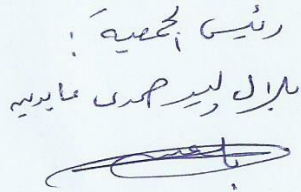 رئيس الجمعية :
بلال وليد حمدى عابدين